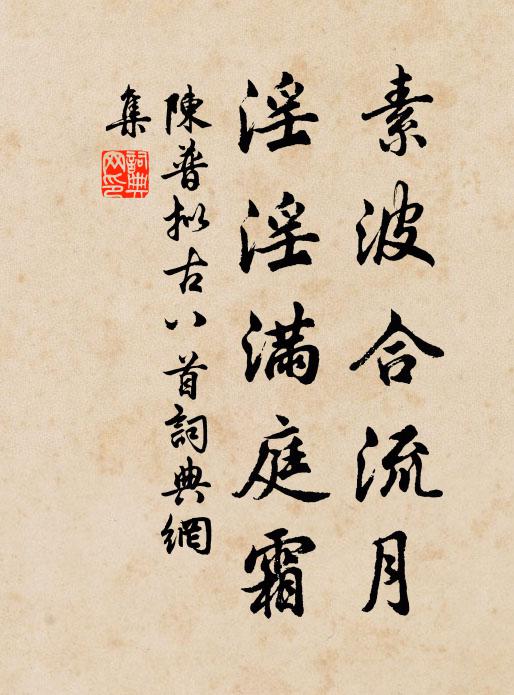 素波合流月
淫淫滿庭霜
陳普拟古八首詞典網
集
詞典
网印